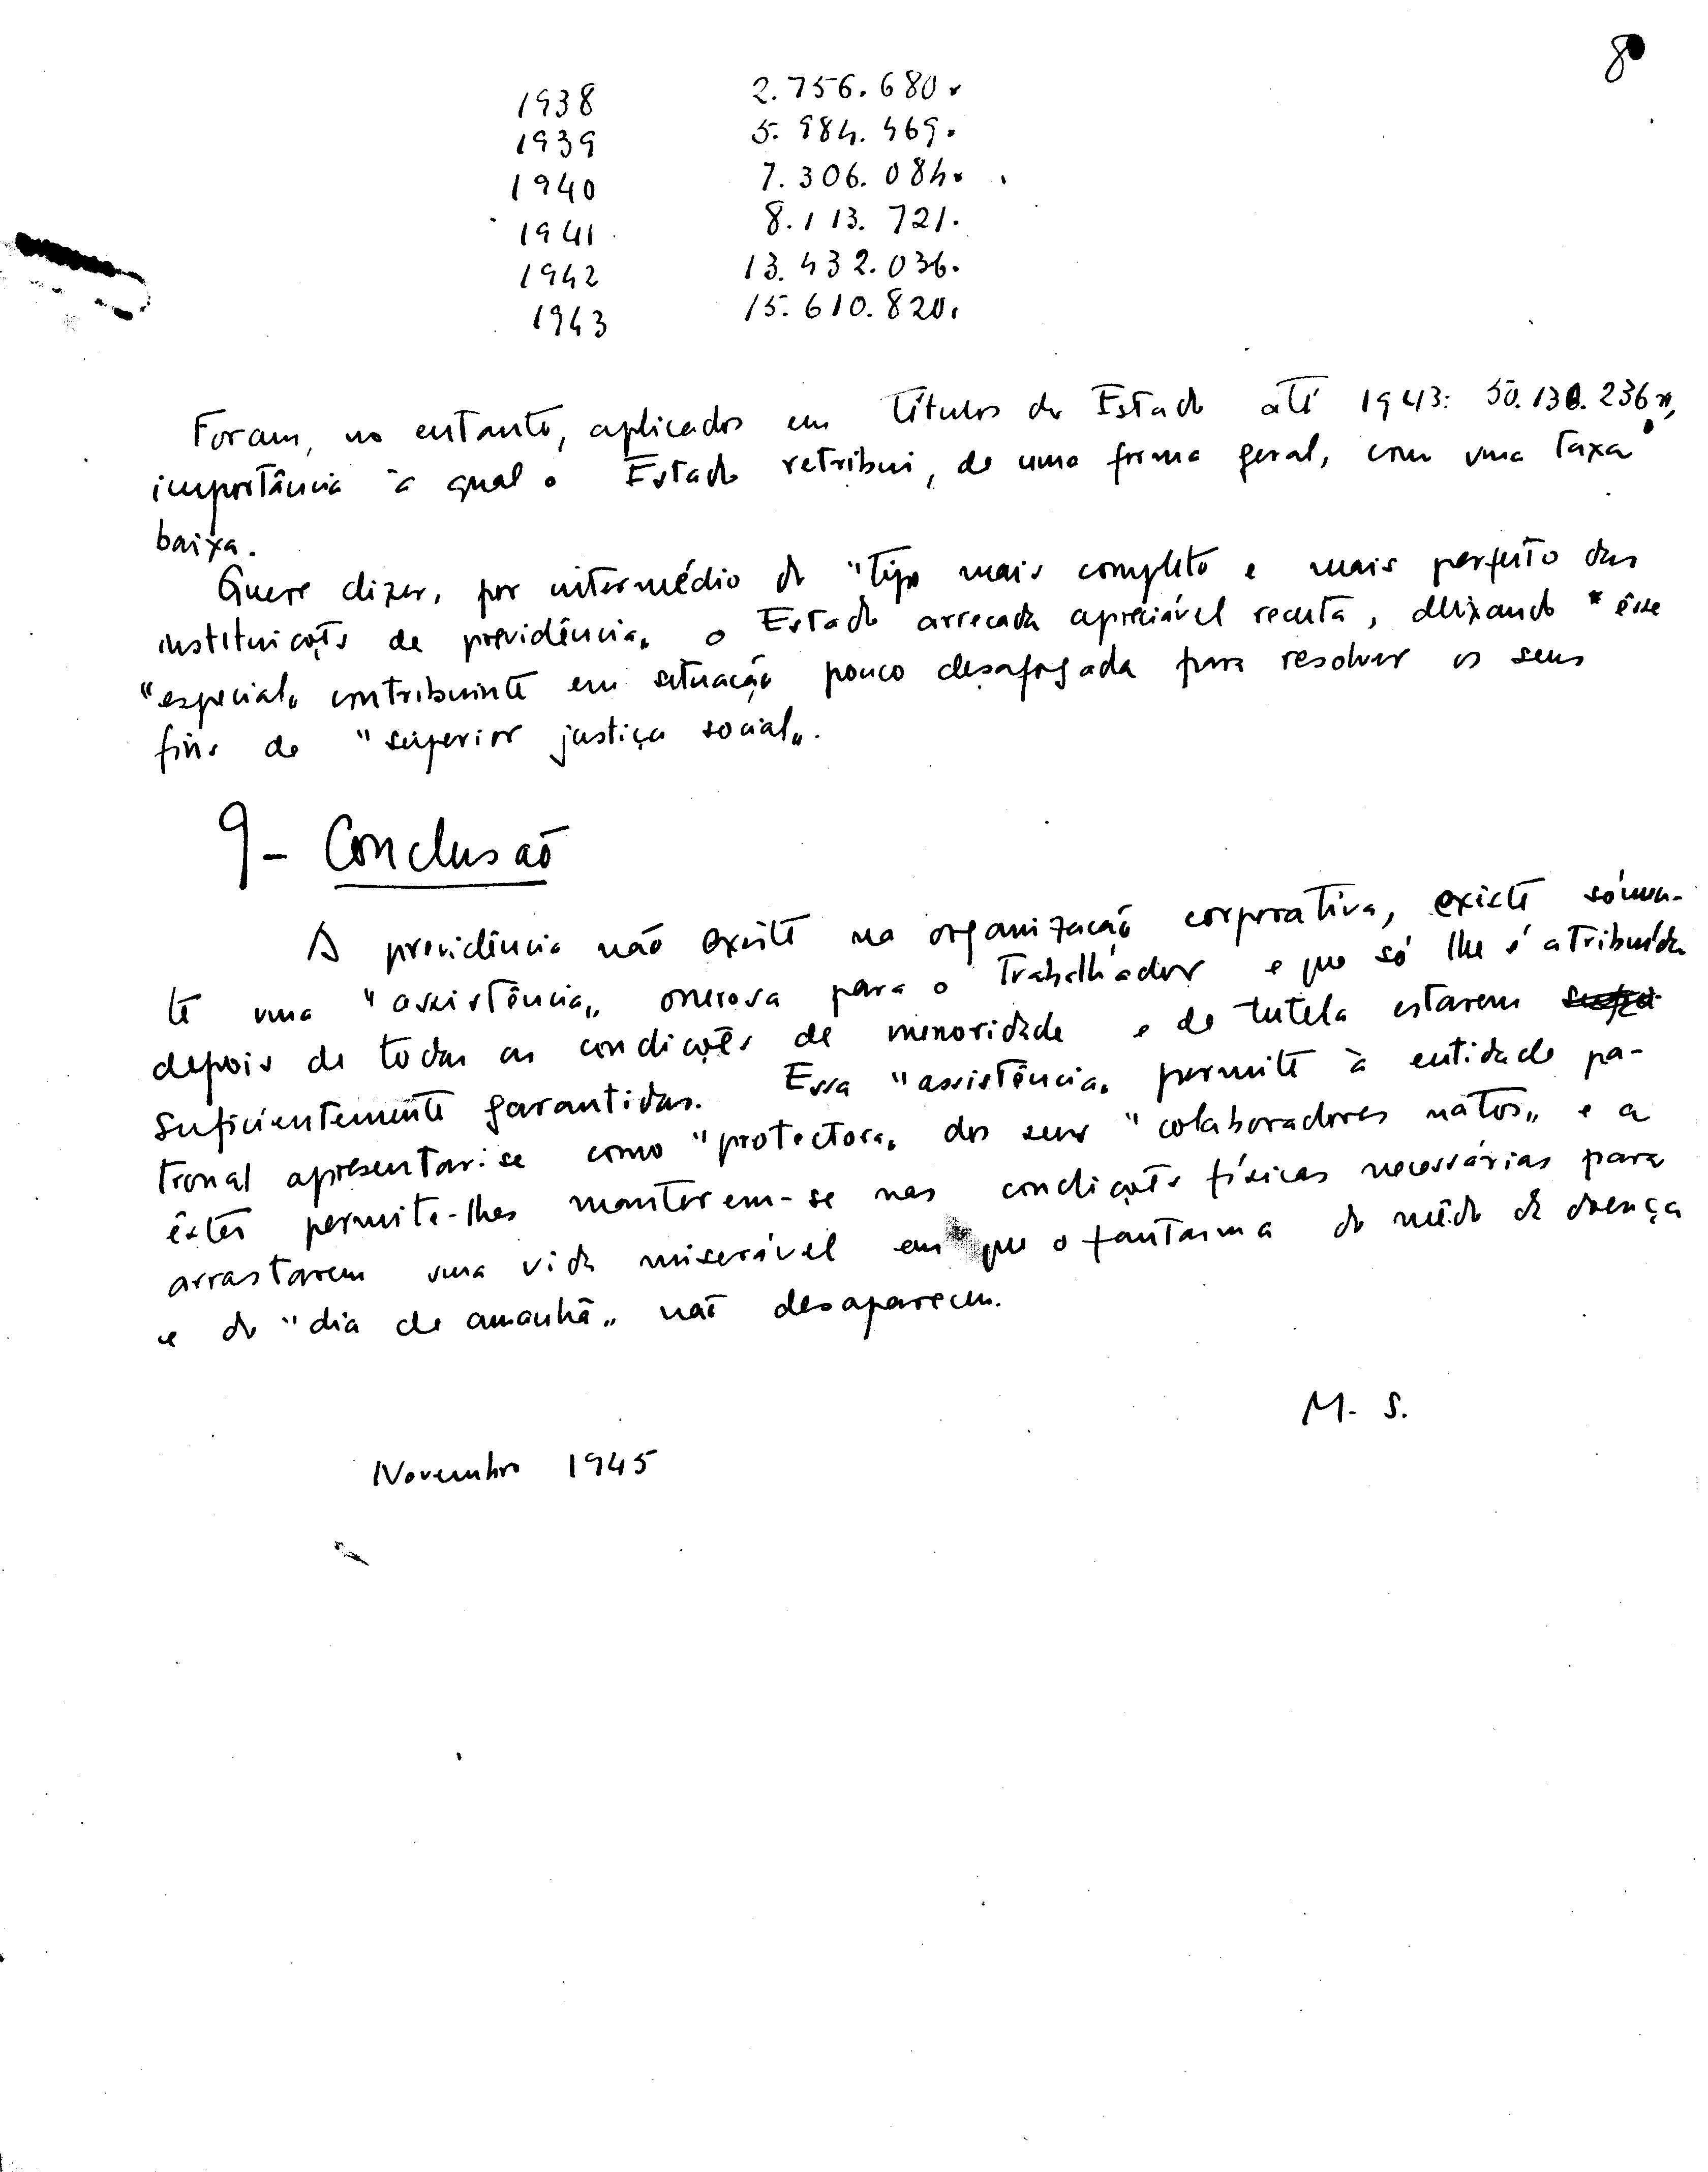 8
1938 2.756.680.
1939 5.984.469.
1940 7.306.084.
1941 8.113.721.
1942 13.432.036.
1943 15.610.820.
Foram, no entanto, aplicados em títulos do Estado até 1943: 50.130.236,
importância à qual o Estado retribui, de uma forma geral, com uma taxa
baixa.
Quere dizer, por intermédio do "tipo mais completo e mais perfeito das
instituições de previdência" o Estado arrecada apreciável receita, deixando êsse
"especial" contribuinte em situação pouco desafogada para resolver os seus
fins de "superior justiça social".
9- Conclusão
A previdência não existe na organização corporativa, existe sòmen-
te uma "assistência" onerosa para o trabalhador e que só lhe é atribuída
depois de todas as condições de menoridade e de tutela estarem
suficientemente garantidas. Essa "assistência" permite à entidade pa-
tronal apresentar-se como "protectora" dos seus "colaboradores natos" e a
êstes permite-lhes manterem-se nas condições físicas necessárias para
arrastarem uma vida miserável em que o fantasma do mêdo da doença
e do "dia de amanhã" não desaparecem.
M. S.
Novembro 1945